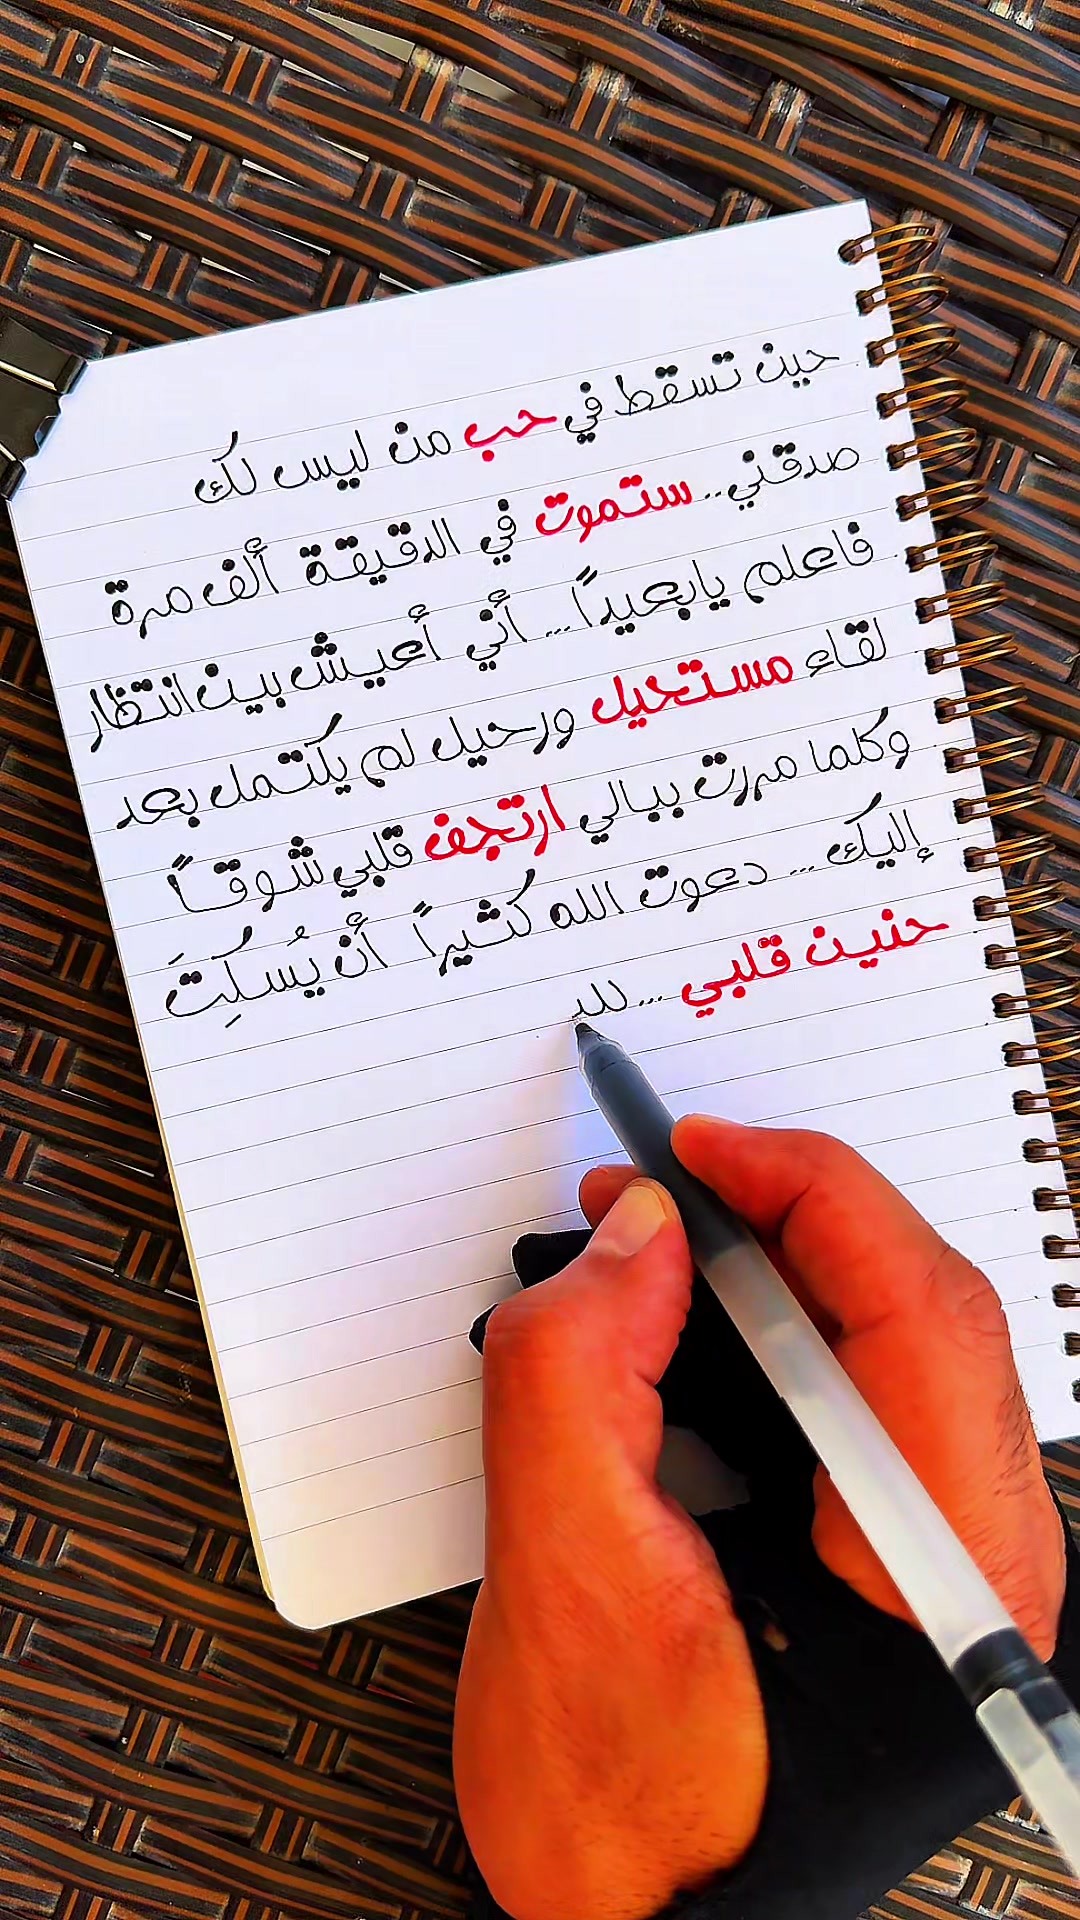 حين تسقط في حب من ليس لك
صدقني.. ستموت في الدقيقة ألف مرة
فاعلم يابعيداً... أني أعيش بين انتظار
لقاء مستحيل ورحيل لم يكتمل بعد
وكلما مررت ببالي ارتجف قلبي شوقاً
إليك... دعوت الله كثيراً أن يُسكِتَ
حنين قلبي...